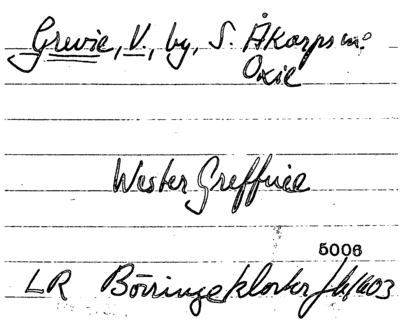 Grevie, V., by, S. Åkarps sn.
Oxie
Wester Greffuie
5006
LR Börringekloster